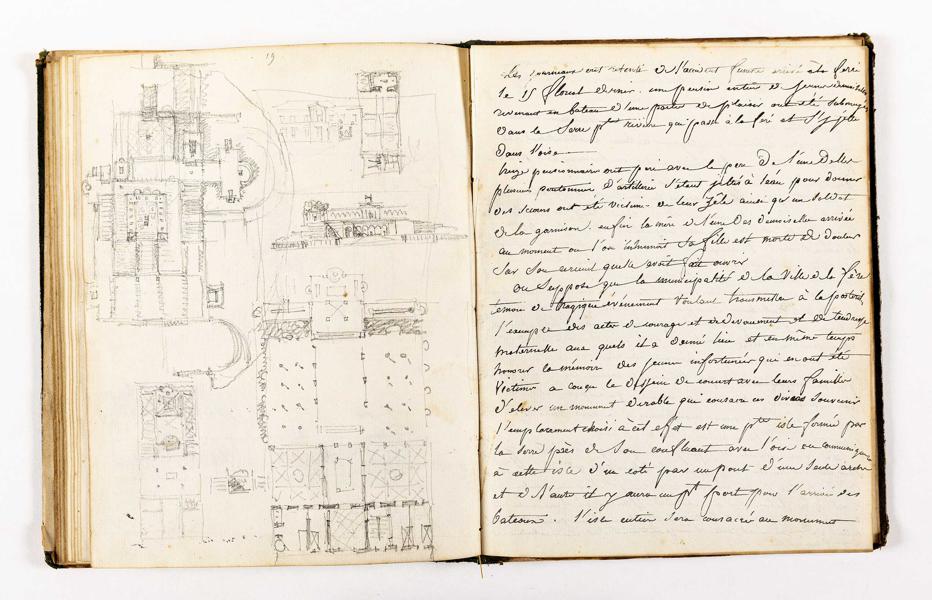 19
Les journaux ont retenti de l'accident funeste arrivé à la fère
le 15 floréal dernier. une pension entière de jeunes demoiselles
revenant en bateau d'une partie de plaisir ont été submergées
dans la Serre pte rivière qui passe à la fère et s'y jette
dans l'oise
treize pensionnaires ont péri avec le père de l'une d'elles
plusieurs pontonniers d'artillerie s'étant jettés à l'eau pour donner
des secours ont été victimes de leur zèle ainsi qu'un soldat
de la garnison. enfin la mère de l'une des demoiselles arrivée
au moment ou l'on inhumait sa fille est morte de douleur
sur son cercueil quelle avait fait ouvrir
on suppose que la municipalité de la ville de la fère
témoin de tragique évènement voulant transmettre à la postérité
l'exemple des actes de courage et de dévouement et de tendresse
maternelle aux quels il a donné lieu et en même temps
honorer la mémoire des jeunes infortunées qui en ont été
victimes a conçu le dessein de concert avec leurs familles
d'élever un monument durable qui consacre ces divers souvenirs
l'emplacement choisi à cet effet est une pte isle formée par
la Serre près de son confluant avec l'oise on communiquera
à cette isle d'un coté par un pont d'une seule arche
et de l'autre il y aura un pt port pour l'arrivée des
bateaux. l'isle entière sera consacrée au monument